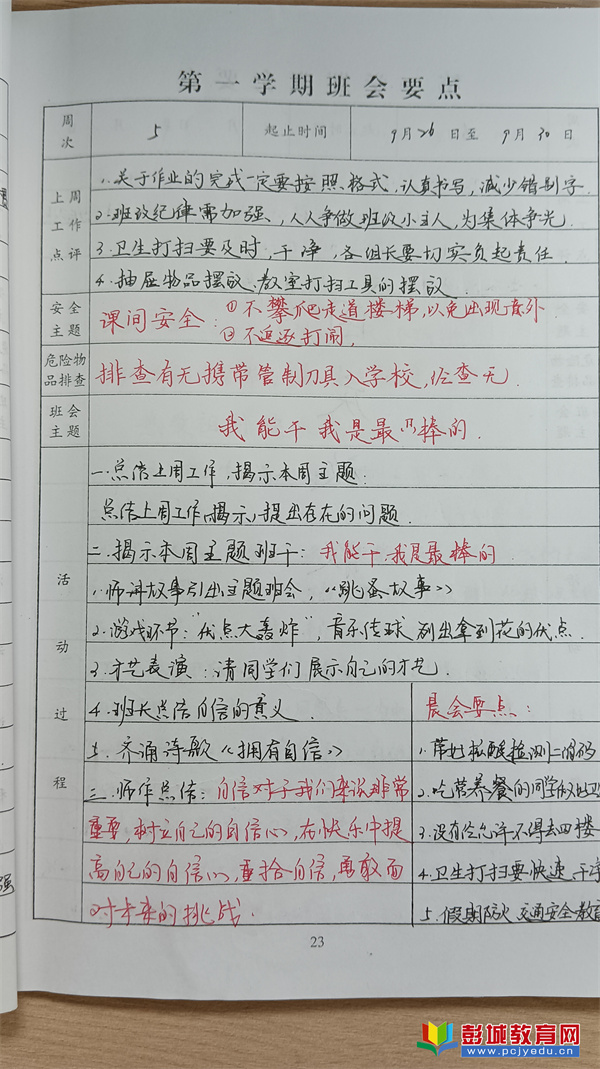 第一学期班会要点
周次 5 起止时间 9月26日至9月30日
上周工作点评
1.关于作业的完成一定要按照格式,认真书写,减少错别字.
2.班级纪律需加强、人人争做班级小主人,为集体争光.
3.卫生打扫要及时,干净,各组长要切实负起责任.
4.抽屉物品摆放.教室打扫工具的摆放.
安全主题
课间安全:①不攀爬走道楼梯,以免出现意外
②不追逐打闹.
危险物品排查
排查有无携带管制刀具入学校,经查无.
班会主题
我能干 我是最棒的.
活动过程
一.总结上周工作,揭示本周主题:
总结上周工作,揭示,提出存在的问题.
二.揭示本周主题班干:我能干.我是最棒的.
1.师讲故事引出主题班会,《跳蚤故事》
2.游戏环节:"优点大轰炸",音乐传球 列出拿到花的优点.
3.才艺表演:请同学们展示自己的才艺.
4.班长总结自信的意义.
5.齐诵诗歌《拥有自信》
三.师作总结:自信对于我们来说非常
重要,树立自己的自信心,在快乐中提
高自己的自信心,重拾自信,勇敢面
对未来的挑战.
晨会要点:
1.带好核酸检测二维码
2.吃营养餐的同学
3.没有经允许不得去四楼
4.卫生打扫要快速 干净
5.假期防火 交通安全教育
23
彭城教育网
www.pcjyedu.cn